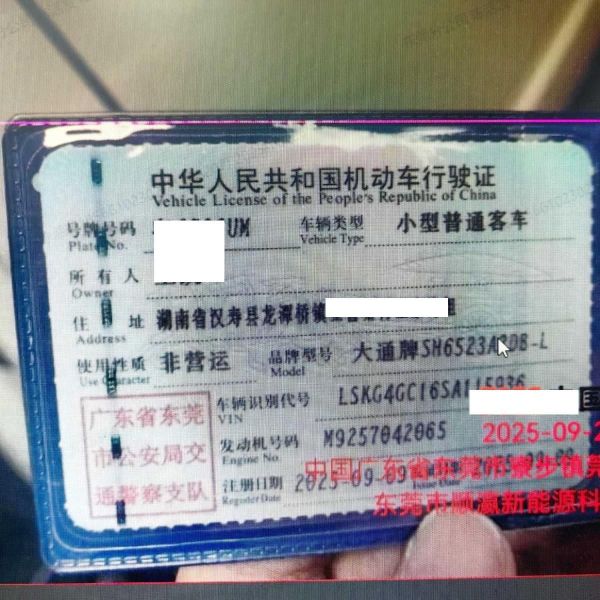 中华人民共和国机动车行驶证
Vehicle License of the People's Republic of China
号牌号码 UM 车辆类型 小型普通客车
Plate No. Vehicle Type
所有人
Owner
住址 湖南省汉寿县龙潭桥镇
Address
使用性质 非营运 品牌型号 大通牌SH6523A
Use Character Model
广东省东莞
市公安局交
通警察支队
车辆识别代号 LSKG4GC16SA
VIN
发动机号码 M9257042065
Engine No.
注册日期 2025-09-09
Register Date
国
2025-09-2
中国广东省东莞市寮步镇莞
东莞市顺瀛新能源科